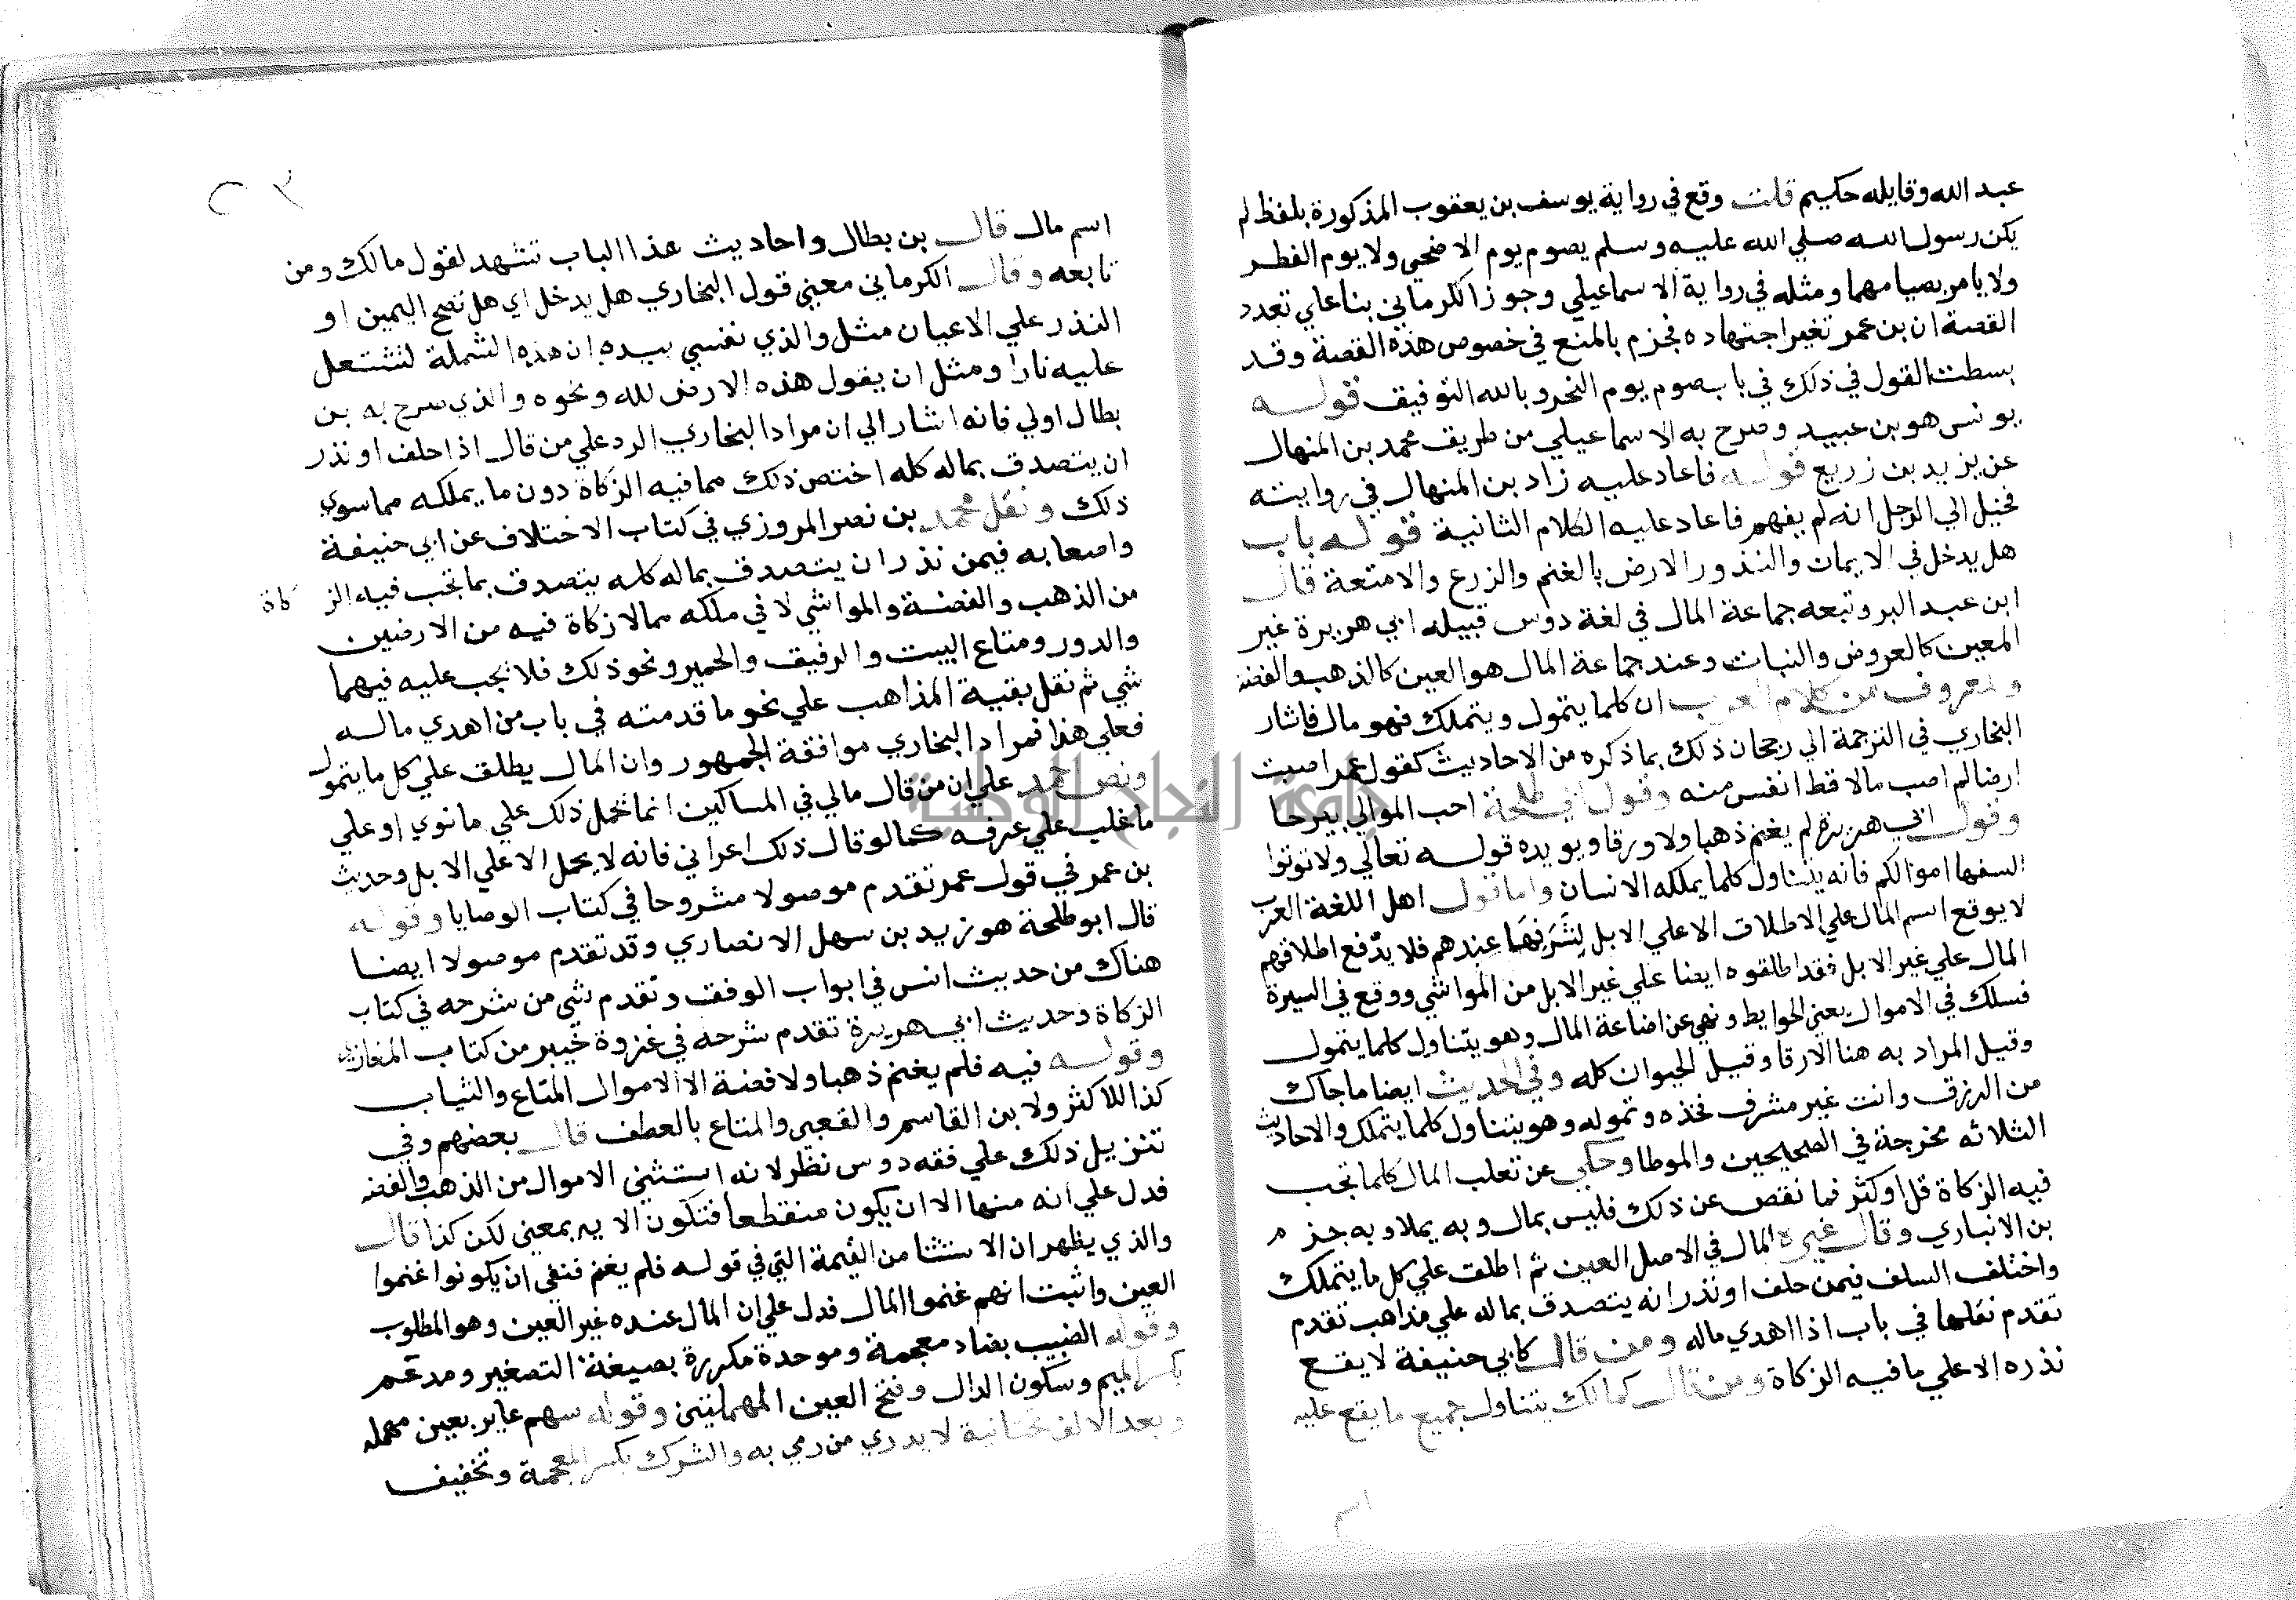 عبد الله وقايله حكيم قلت وقع في رواية يوسف بن يعقوب المذكورة بلفظ لم
يكن رسول الله صلي الله عليه وسلم يصوم يوم الاضحي ولا يوم الفطر
ولا يامر بصيامهما ومثله في رواية الاسماعيلي وجوز الكرماني بنا علي تعدد
القصة ان بن عمر تغير اجتهاده فجزم بالمنع في خصوص هذه القصة وقد
بسطت القول في ذلك في باب صوم يوم النحر وبالله التوفيق قوله
يونس هو بن عبيد وصرح به الاسماعيلي من طريق محمد بن المنهال
عن يزيد بن زريع قوله فاعاد عليه زاد بن المنهال في روايته
فخيل الي الرجل انه لم يفهم فاعاد عليه الكلام الثانية قوله باب
هل يدخل في الايمان والنذور الارض والغنم والزرع والامتعة قال
ابن عبد البر وتبعه جماعة المال في لغة دوس قبيله ابي هريرة غير
المعين كالعروض والنبات وعند جماعة المال هو العين كالذهب والفضه
والمعروف من كلام العرب ان كلما يتمول ويتملك فهو مال فاشار
البخاري في الترجمة الي رجحان ذلك بما ذكره من الاحاديث كقول عمر اصبت
ارضا لم اصب مالا قط انفس منه وقول ابي طلحة احب اموالي بيرحا
وقول ابي هريرة لم يغنم ذهبا ولا ورقا ويويده قوله تعالي ولا توتوا
السفها اموالكم فانه يتناول كلما يملكه الانسان واما قول اهل اللغة العرب
لا يوقع اسم المال علي الاطلاق الا علي الابل لشرفها عندهم فلا يدفع اطلاقهم
المال علي غير الابل فقد اطلقوه ايضا علي غير الابل من المواشي ووقع في السيرة
فسلك في الاموال يعني الحوايط ونهي عن اضاعة المال وهو يتناول كلما يتمول
وقيل المراد به هنا الارقا وقيل الحيوان كله وفي الحديث ايضا ما جاك
من الرزق وانت غير مشرف فخذه وتموله وهو يتناول كلما يتملك والاحاديث
الثلاثه مخرجة في الصحيحين والموطا وحكي عن ثعلب المال كلما تجب
فيه الزكاة قل او كثر فما نقص عن ذلك فليس بمال وبه جزم
بن الانباري وقال غيره المال في الاصل العين ثم اطلق علي كل ما يتملك
واختلف السلف فيمن حلف او نذر انه يتصدق بماله علي مذاهب تقدم
تقدم نقلها في باب اذا اهدي ماله ومن قال كابي حنيفة لا يقع
نذره الا علي ما فيه الزكاة ومن قال كمالك يتناول جميع ما يقع عليه
اسم
اسم مال قال بن بطال واحاديث هذا الباب تشهد لقول مالك ومن
تابعه وقال الكرماني معني قول البخاري هل يدخل اي هل تصح اليمين او
النذر علي الاعيان مثل والذي نفسي بيده ان هذه الشملة لتشتعل
عليه نارا ومثل ان يقول هذه الارض لله ونحوه والذي صرح به بن
بطال اولي فانه اشار الي ان مراد البخاري الرد علي من قال اذا حلف او نذر
ان يتصدق بماله كله اختص ذلك بما فيه الزكاة دون ما يملكه مما سوي
ذلك ونقل محمد بن نصر المروزي في كتاب الاختلاف عن ابي حنيفة
واصحابه فيمن نذر ان يتصدق بماله كله يتصدق بما تجب فيه الزكاة
من الذهب والفضة والمواشي لا في ملكه مما لا زكاة فيه من الارضين
والدور ومتاع البيت والرقيق والحمير ونحو ذلك فلا يجب عليه فيهما
شي ثم نقل بقية المذاهب علي نحو ما قدمته في باب من اهدي ماله
فعلي هذا فمراد البخاري موافقة الجمهور وان المال يطلق علي كل ما يتمول
ونص احمد علي ان من قال مالي في المساكين انما يحمل ذلك علي ما نوي او علي
ما غلب علي عرفه كما لو قال ذلك اعرابي فانه لا يحمل الا علي الابل وحديث
بن عمر في قول عمر تقدم موصولا مشروحا في كتاب الوصايا وقوله
قال ابو طلحة هو زيد بن سهل الانصاري وقد تقدم موصولا ايضا
هناك من حديث انس في ابواب الوقف وتقدم شي من شرحه في كتاب
الزكاة وحديث ابي هريرة تقدم شرحه في غزوة خيبر من كتاب المغازي
وقوله فيه فلم يغنم ذهبا ولا فضة الا الاموال المتاع والثياب
كذا للاكثر ولابن القاسم والقعبي والمتاع بالعطف قال بعضهم وفي
تنزيل ذلك علي فقه دوس نظر لانه استثني الاموال من الذهب والفضه
فدل علي انه منها الا ان يكون منقطعا فتكون الا به بمعني لكن كذا قال
والذي يظهر ان الاستثنا من الغنيمة التي في قوله فلم يغنم فنفي ان يكونوا غنموا
العين واثبت انهم غنموا المال فدل علي ان المال عنده غير العين وهو المطلوب
وقوله الضبيب بضاد معجمة وموحدة مكررة بصيغة التصغير ومدعم
بكسر الميم وسكون الدال وفتح العين المهملتين وقوله سهم عاير بعين مهمله
وبعد الالف تحتانية لا يدري من رمي به والشرك بكسر المعجمة وتخفيف
جامعة النجاح الوطنية